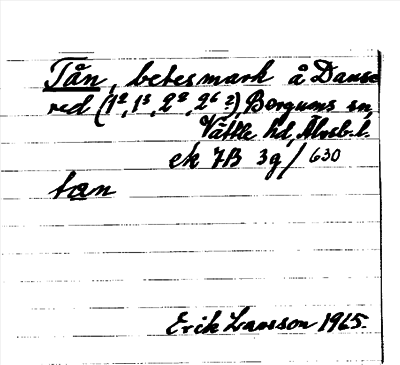 Tån, betesmark å Danse
red (1²,1³,2²,2⁶?), Bergums sn,
Vättle hd, Älvsb. l.
ek 7B 3g/630
tan
Erik Larsson 1965.